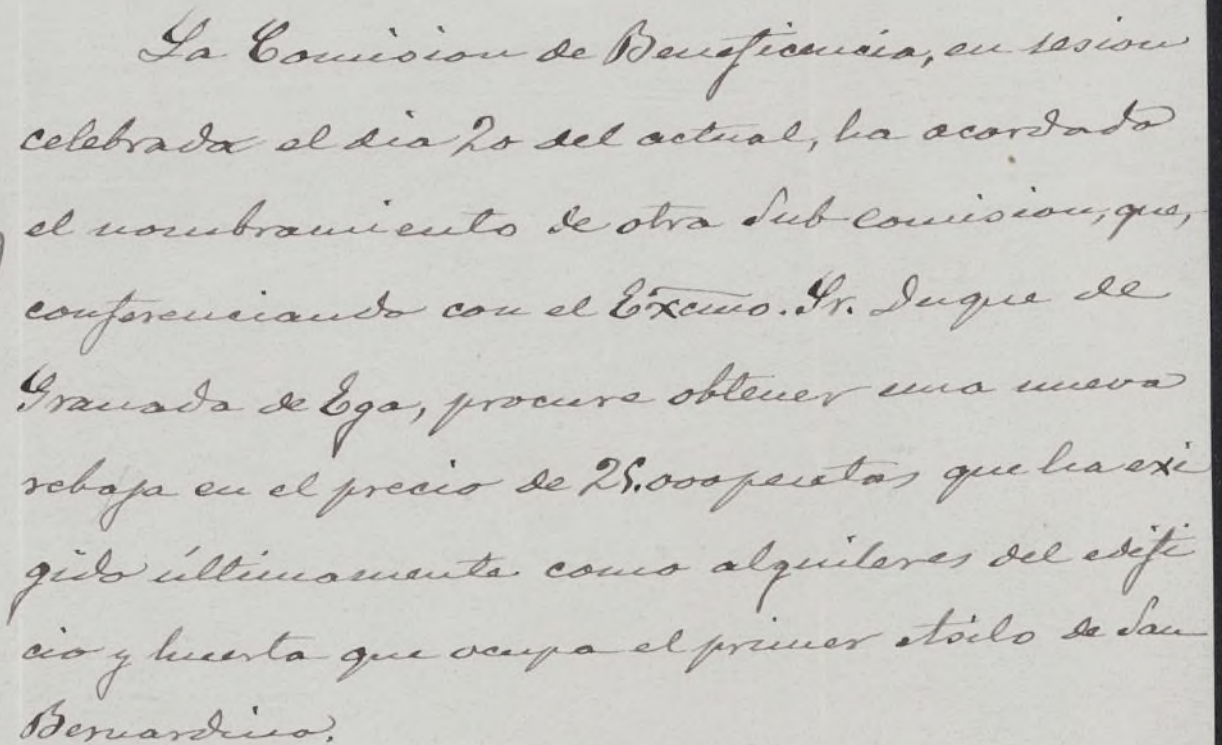 La Comision de Beneficencia, en sesion
celebrada el dia 20 del actual, ha acordado
el nombramiento de otra Sub-comision, que,
conferenciando con el Excmo. Sr. Duque de
Granada de Ega, procure obtener una nueva
rebaja en el precio de 25.000 pesetas que ha exi
gido últimamente como alquileres del edifi
cio y huerta que ocupa el primer Asilo de San
Bernardino.